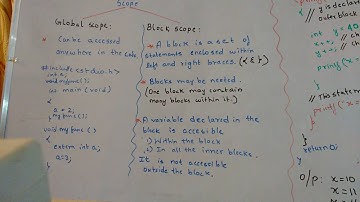 Scope
Global scope:
* Can be accessed
anywhere in the
#include<stdio.h>
int a;
void myfunc();
int main(void)
{
a = 2;
myfunc();
}
void myfunc()
{
extern int a;
a=3;
Block scope:
* A block is a set of
statements enclosed within
left and right braces. ({ & })
* Blocks may be nested.
(One block may contain
many blocks within it.)
* A variable declared in the
block is accessible
1) Within the block
2) In all the inner blocks.
It is not accessible
outside the block.
{
// z is declared
outer block
int y = 40
x++;
printf(x
}
// This state
printf("x
}
return 0;
}
O/P: x=10
x=11